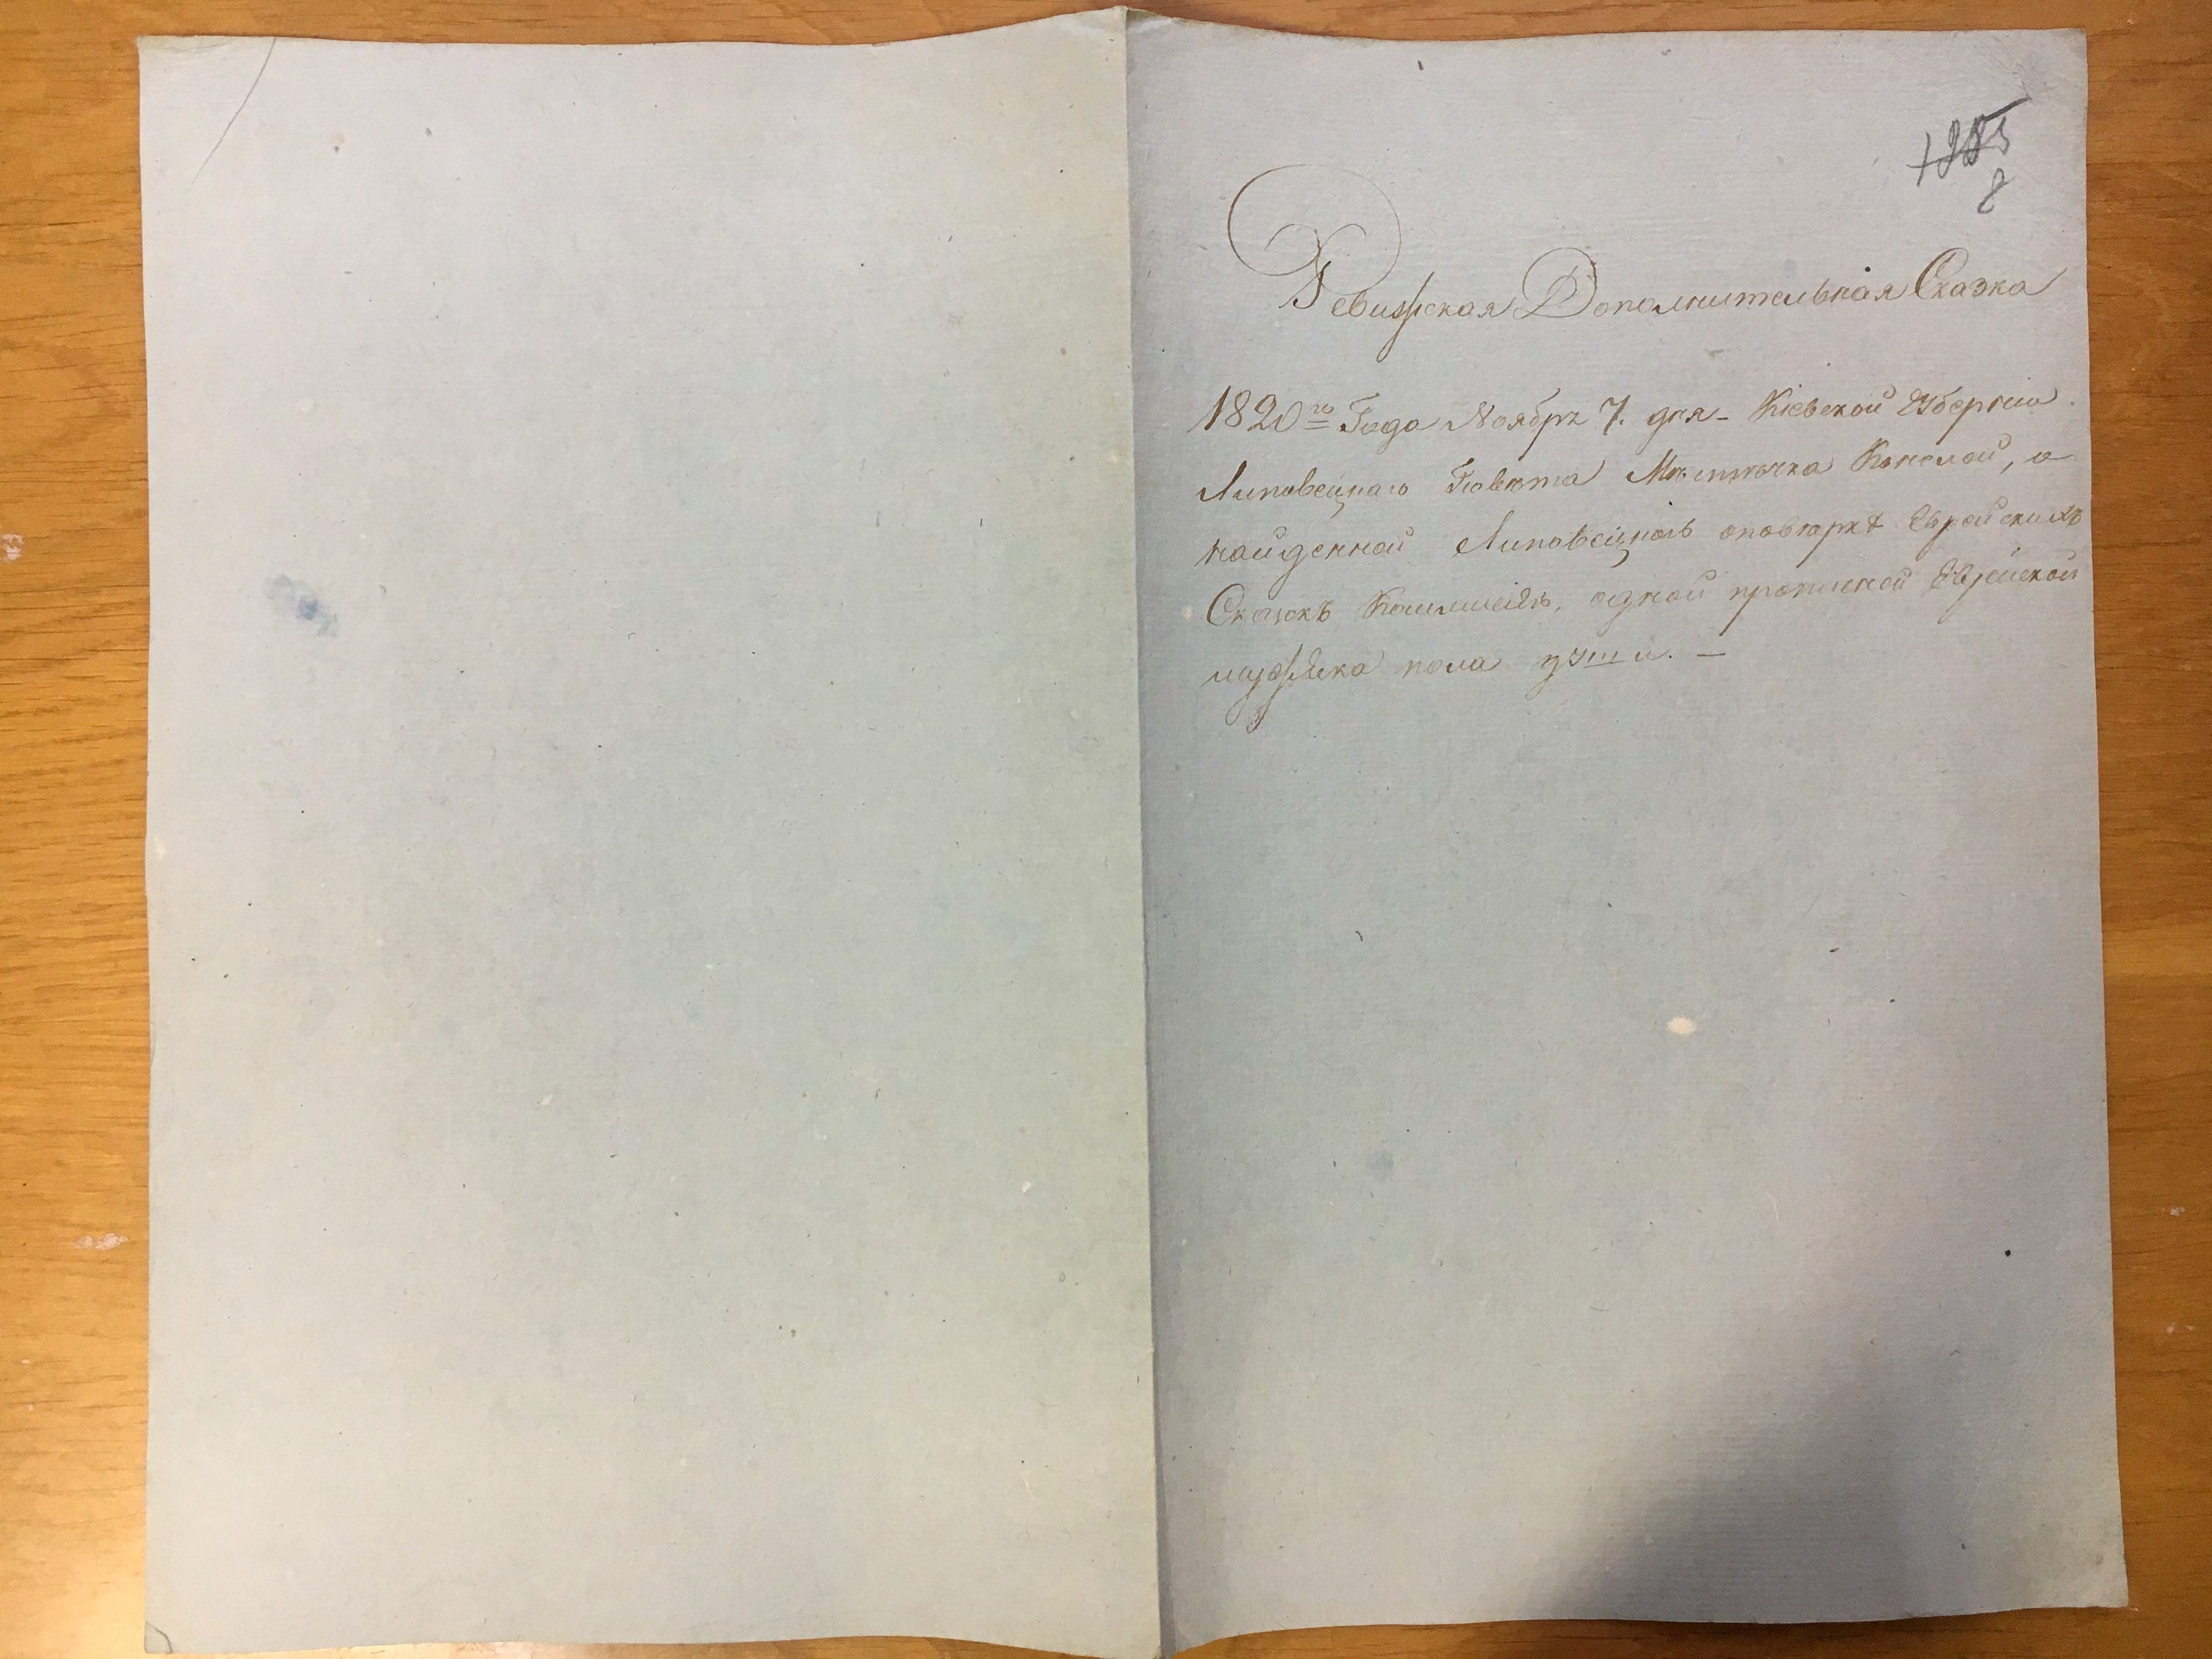 8
Ревижская Дополнительная Сказка
1820го Года Ноября 7. дня - Кіевской Губерніи
Липовецкаго Повѣта Мѣстечка Конелой, о
найденной Липовецкою о повѣркѣ Еврейскихъ
Сказокъ Коммиссіею, одной прописной Еврейской
мужеска пола души. —